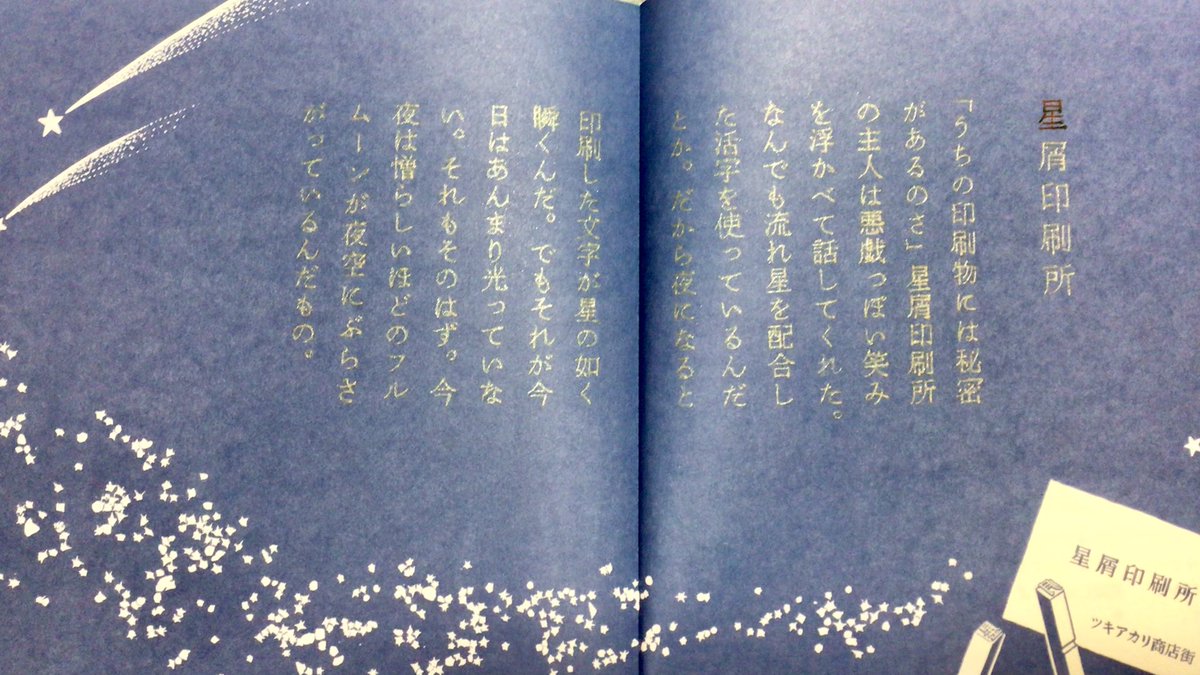 星屑印刷所
「うちの印刷物には秘密
があるのさ」星屑印刷所
の主人は悪戯っぽい笑み
を浮かべて話してくれた。
なんでも流れ星を配合し
た活字を使っているんだ
とか。だから夜になると
印刷した文字が星の如く
瞬くんだ。でもそれが今
日はあんまり光っていな
い。それもそのはず。今
夜は憎らしいほどのフル
ムーンが夜空にぶらさ
がっているんだもの。
星屑印刷所
ツキアカリ商店街